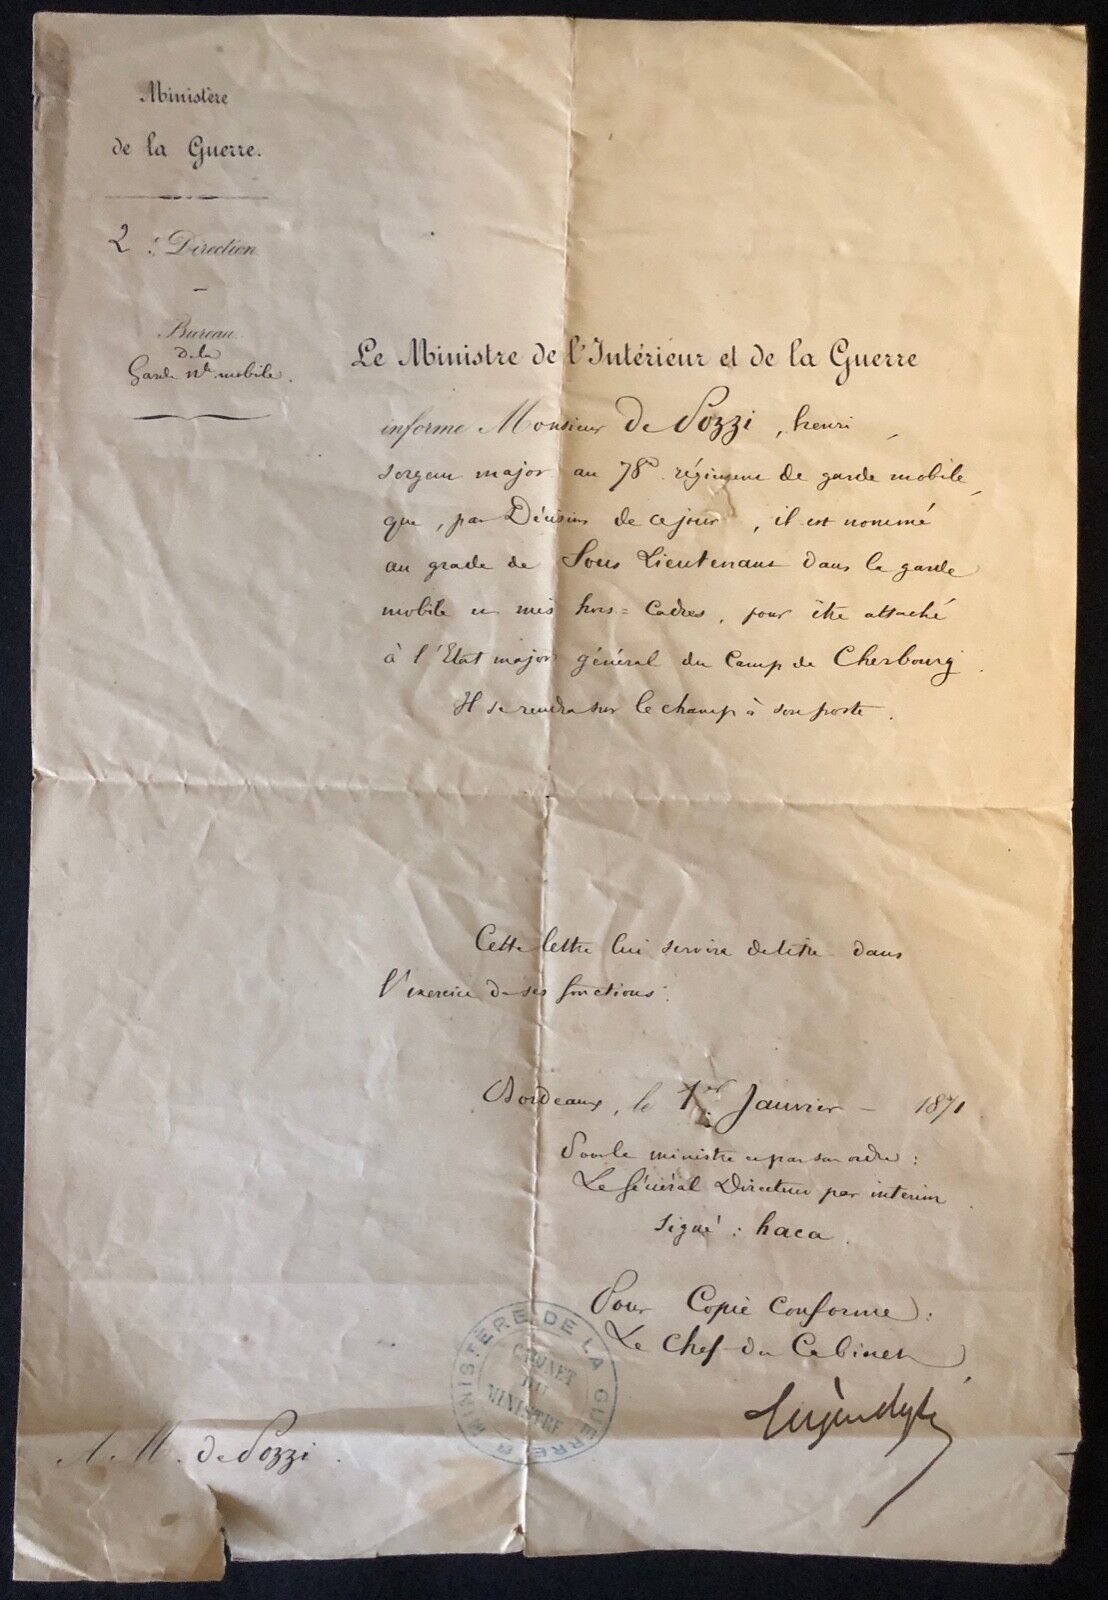 Ministère
de la Guerre.
2e. Direction
Bureau
de la
Garde Nle mobile.
Le Ministre de l'Intérieur et de la Guerre
informe Monsieur De Pozzi, henri,
sergent major au 78e régiment de garde mobile,
que, par Décision de ce jour, il est nommé
au grade de Sous Lieutenant dans la garde
mobile et mis hors=Cadres, pour être attaché
à l'Etat major général du Camp de Cherbourg.
Il se rendra sur le champ à son poste.
Cette lettre lui servira de titre dans
l'exercice de ses fonctions.
Bordeaux, le 1er Janvier 1871
Pour le ministre et par son ordre:
Le Général Directeur par intérim
signé: haca.
Pour Copie Conforme:
Le Chef du Cabinet
MINISTÈRE DE LA GUERRE
CABINET
DU
MINISTRE
A M. de Pozzi.